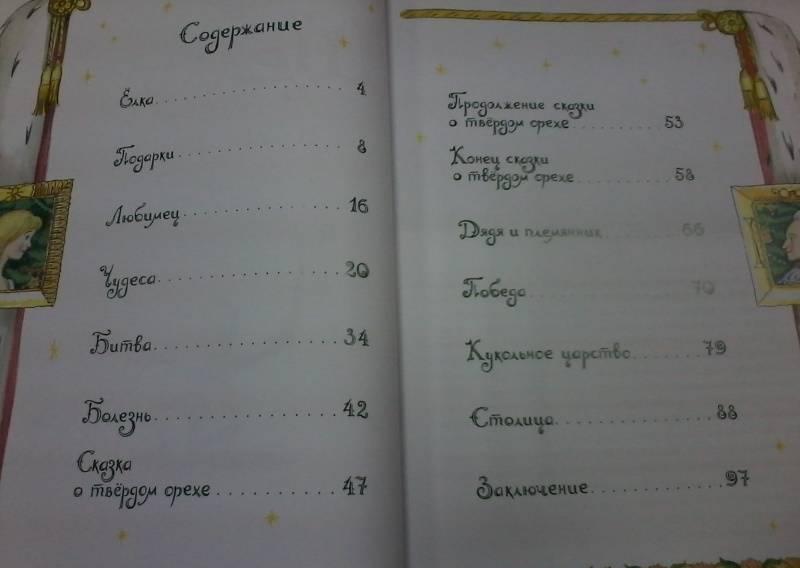 Содержание
Ёлка 4
Подарки 8
Любимец 16
Чудеса 20
Битва 34
Болезнь 42
Сказка
о твёрдом орехе 47
Продолжение сказки
о твёрдом орехе 53
Конец сказки
о твёрдом орехе 58
Дядя и племянник 66
Победа 70
Кукольное царство 79
Столица 88
Заключение 97